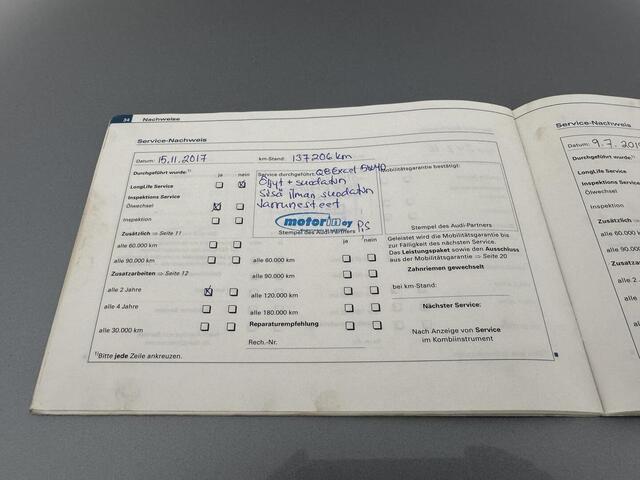 34 Nachweise
Service-Nachweis
Datum: 15.11.2017 km-Stand: 137206 km
Durchgeführt wurde:¹⁾ ja nein
LongLife Service
Inspektions Service
Ölwechsel
Inspektion
Zusätzlich ⇒ Seite 11
alle 60.000 km
alle 90.000 km
Zusatzarbeiten ⇒ Seite 12
alle 2 Jahre
alle 4 Jahre
alle 30.000 km
¹⁾Bitte jede Zeile ankreuzen.
Service durchgeführt: Q8 Excel 5W40
Öljyt + suodatin
Sisä ilman suodatin
Jarrunesteet
motorin oy
Stempel des Audi-Partners
ja nein
alle 60.000 km
alle 90.000 km
alle 120.000 km
alle 180.000 km
Reparaturempfehlung
Rech.-Nr.
Mobilitätsgarantie bestätigt:
Stempel des Audi-Partners
Geleistet wird die Mobilitätsgarantie bis
zur Fälligkeit des nächsten Service.
Das Leistungspaket sowie den Ausschluss
aus der Mobilitätsgarantie ⇒ Seite 20
Zahnriemen gewechselt
bei km-Stand:
Nächster Service:
Nach Anzeige von Service
im Kombiinstrument
Service-Nachweis
Datum: 9.7.201
Durchgeführt wurde:
LongLife Service
Inspektions Service
Ölwechsel
Inspektion
Zusätzlich
alle 60.000
alle 90.00
Zusatza
alle 2 J
alle 4
alle 3